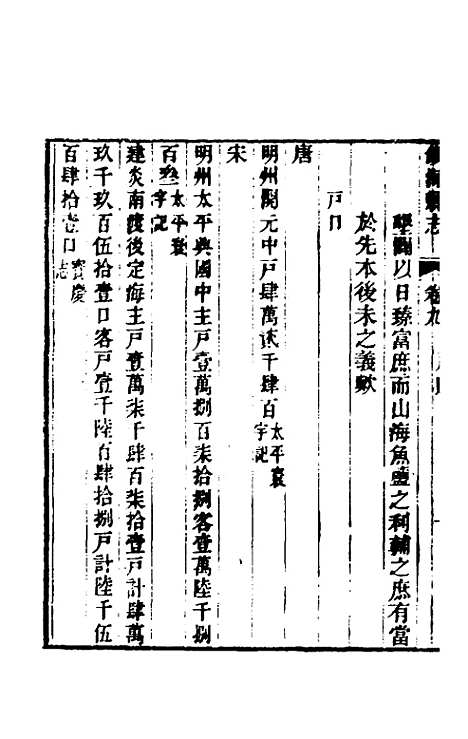 鎮海縣志 卷九
墾闢以日臻富庶而山海魚鹽之利輔之庶有當
於先本後末之義歟
戶口
唐
明州開元中戶肆萬貳千肆百太平寰宇記
宋
明州太平興國中主戶壹萬捌百柒拾捌客壹萬陸千捌
百叄太平寰宇記
建炎南渡後定海主戶壹萬柒千肆百柒拾壹戶計肆萬
玖千玖百伍拾壹口客戶壹千陸百肆拾捌戶計陸千伍
百肆拾壹口寶慶志